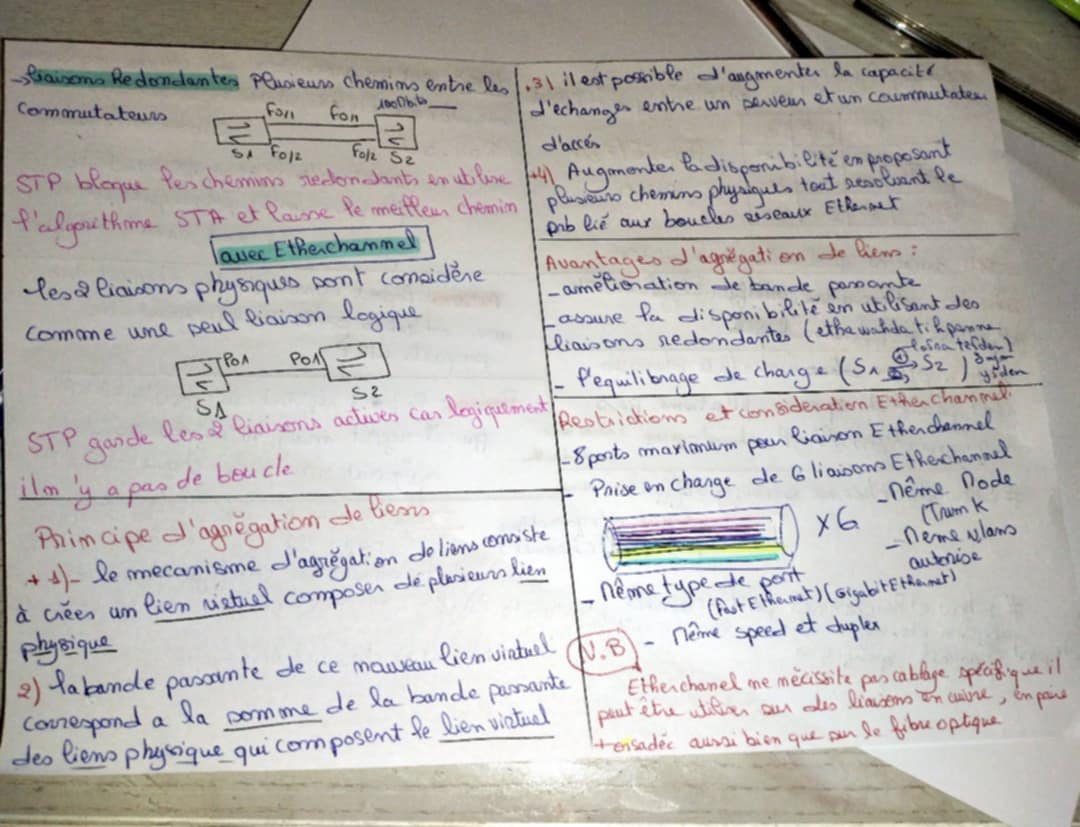 → liaisons Redondantes Plusieurs chemins entre les
Commutateurs
Fo/1 Fo/1 100Mb/s
S1 Fo/2 Fo/2 S2
STP bloque les chemins redondants en utilise
l'algorithme STA et laisse le meilleur chemin
avec Etherchannel
les 2 liaisons physiques sont considère
comme une seul liaison logique
Po1 Po1
S1 S2
STP garde les 2 liaisons actives car logiquement
il n'y a pas de boucle
Principe d'agrégation de liens
+ 1)- le mecanisme d'agrégation de liens consiste
à créer un lien virtuel composer de plusieurs lien
physique
2) la bande passante de ce nouveau lien virtuel
correspond a la somme de la bande passante
des liens physique qui composent le lien virtuel
.3) il est possible d'augmenter la capacité
d'echanger entre un serveur et un coummutateur
d'accés
+4) Augmenter la disponibilité en proposant
plusieurs chemins physiques tout resolvant le
pnb lié aux boucles eseaux Ethernet
Avantages d'agrégation de liens :
- amélioration de bande passante
- assure la disponibilité en utilisant des
liaisons redondantes (etha wahda tih panne
- l'equilibrage de charge (S1 S2)
Restrictions et consideration Etherchannel
- 8 ports maximum pour liaison Etherchannel
- Prise en charge de 6 liaisons Etherchannel
x6
- Même Mode
(Trunk
- Meme vlans
autorise
- Même type de port
(Fast Ethernet) (Gigabit Ethernet)
- Même speed et duplex
N.B
Etherchanel ne nécissite pas cablage spécifique il
peut être utiliser sur des liaisons en cuivre, en paire
torsadée aussi bien que sur le fibre optique